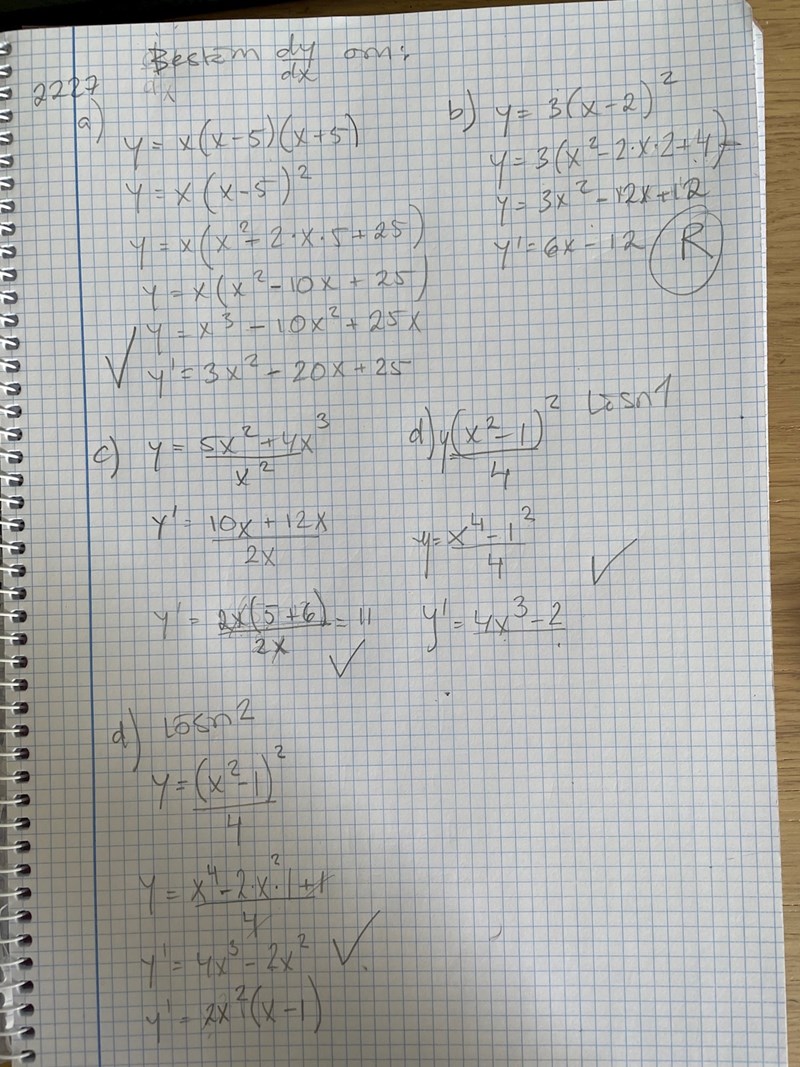 2227 Bestäm dy/dx om:
a)
y = x(x-5)(x+5)
y = x(x-5)²
y = x(x²-2·x·5+25)
y = x(x²-10x+25)
y = x³-10x²+25x
y' = 3x²-20x+25
b) y = 3(x-2)²
y = 3(x²-2·x·2+4)
y = 3x²-12x+12
y' = 6x-12 R
c) y = (5x²+4x³)/x²
y' = (10x+12x)/2x
y' = 2x(5+6)/2x = 11
d) y (x²-1)²/4 Lösn 1
y = (x⁴-1²)/4
y' = 4x³-2
d) Lösn 2
y = (x²-1)²/4
y = (x⁴-2·x²·1+1)/4
y' = 4x³-2x²
y' = 2x²(x-1)